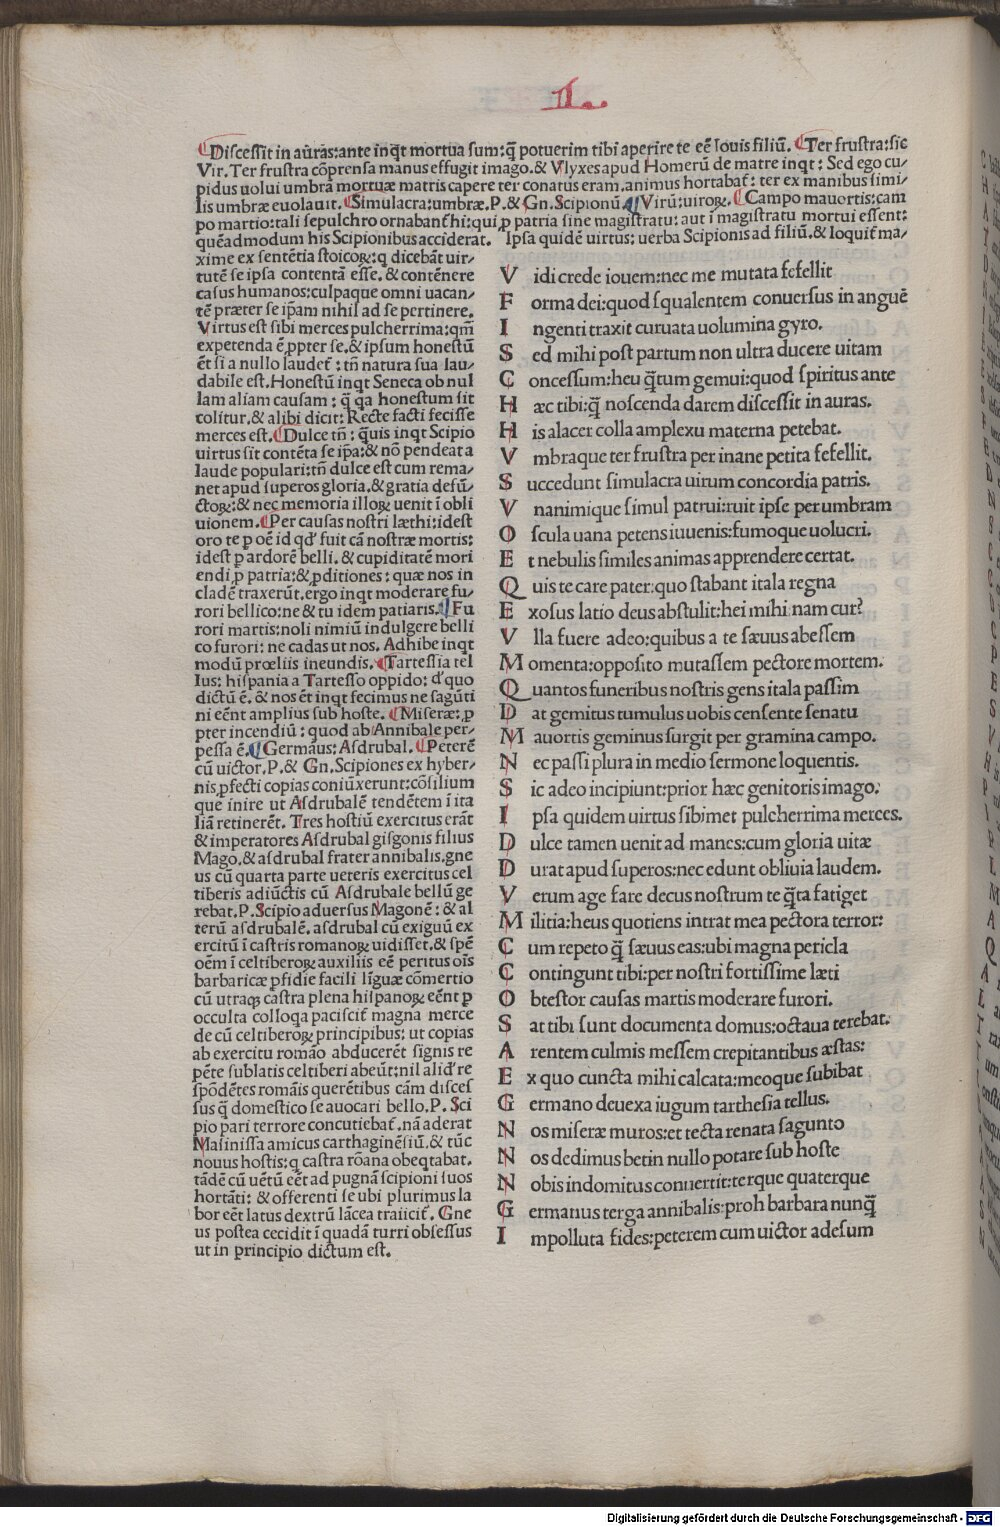 II.
Discessit in aũras:ante inq̃t mortua sum:q̃ potuerim tibi aperire te eẽ Iouis filiũ. Ter frustra:sic
Vir. Ter frustra cõprensa manus effugit imago.& Vlyxes apud Homerũ de matre inqt: Sed ego cu/
pidus uolui umbrã mortuæ matris capere ter conatus eram.animus hortabat̃: ter ex manibus simi/
lis umbræ euolauit. Simulacra:umbræ.P.& Gn.Scipionũ Virũ:uiroꝝ. Campo mauortis:cam
po martio:tali sepulchro ornabant̃ hi:qui ꝓ patria sine magistratu: aut ĩ magistratu mortui essent:
quẽadmodum his Scipionibus acciderat. Ipsa quidẽ uirtus: uerba Scipionis ad filiũ.& loquit̃ ma/
xime ex sentẽtia stoicoꝝ:q dicebãt uir/
tutẽ se ipsa contentã esse.& contẽnere
casus humanos:culpaque omni uacan/
tẽ præter se ip̃am nihil ad se pertinere.
Virtus est sibi merces pulcherrima:qm̃
expetenda ẽ ꝓpter se.& ipsum honestũ
ẽt si a nullo laudet̃ : tñ natura sua lau/
dabile est.Honestũ inqt Seneca ob nul
lam aliam causam : q̃ qa honestum sit
colitur.& alibi dicit: Recte facti fecisse
merces est. Dulce tñ : q̃uis inqt Scipio
uirtus sit contẽta se ip̃a:& nõ pendeat a
laude populari:tñ dulce est cum rema/
net apud superos gloria.& gratia defũ/
ctoꝝ:& nec memoria illoꝝ uenit ĩ obli
uionem. Per causas nostri læthi:idest
oro te p oẽ id qd' fuit cã nostræ mortis:
idest p ardorẽ belli.& cupiditatẽ mori
endi ꝓ patria:& ꝓditiones: quæ nos in
cladẽ traxerũt.ergo inqt moderare fu/
rori bellico:ne & tu idem patiaris. Fu
rori martis:noli nimiũ indulgere belli
co furori: ne cadas ut nos. Adhibe inqt
modũ prœliis ineundis. Tartessia tel
lus: hispania a Tartesso oppido: d'quo
dictũ ẽ.& nos ẽt inqt fecimus ne sagũti
ni eẽnt amplius sub hoste. Miseræ: ꝓ
pter incendiũ: quod ab Annibale per/
pessa ẽ. Germãus: Asdrubal. Peterẽ
cũ uictor.P.& Gn.Scipiones ex hyber/
nis ꝓfecti copias coniũxerunt:cõsilium
que inire ut Asdrubalẽ tendẽtem ĩ ita
liã retinerẽt. Tres hostiũ exercitus erãt
& imperatores Asdrubal gisgonis filius
Mago.& asdrubal frater annibalis.gne
us cũ quarta parte ueteris exercitus cel
tiberis adiũctis cũ Asdrubale bellũ ge
rebat.P.Scipio aduersus Magonẽ: & al
terũ asdrubalẽ. asdrubal cũ exiguũ ex
ercitũ ĩ castris romanoꝝ uidisset.& spẽ
oẽm ĩ celtiberoꝝ auxiliis eẽ peritus oĩs
barbaricæ ꝑfidie facili lĩguæ cõmertio
cũ utraqꝫ castra plena hispanoꝝ eẽnt p
occulta colloqa paciscit̃ magna merce
de cũ celtiberoꝝ principibus: ut copias
ab exercitu romão abducerẽt signis re
pẽte sublatis celtiberi abeũt:nil aliďre
spõdẽtes romãis querẽtibus cãm disces
sus q̃ domestico se auocari bello.P. Sci
pio pari terrore concutiebat̃.nã aderat
Masinissa amicus carthaginẽsiũ.& tũc
nouus hostis:q castra rõana obeqtabat.
tãdẽ cũ uẽtũ eẽt ad pugnã scipioni suos
hortãti: & offerenti se ubi plurimus la
bor eẽt latus dextrũ lãcea traiicit̃. Gne
us postea cecidit ĩ quadã turri obsessus
ut in principio dictum est.
V idi crede iouem:nec me mutata fefellit
F orma dei:quod squalentem conuersus in anguẽ
I ngenti traxit curuata uolumina gyro.
S ed mihi post partum non ultra ducere uitam
C oncessum:heu q̃tum gemui:quod spiritus ante
H æc tibi:q̃ noscenda darem discessit in auras.
H is alacer colla amplexu materna petebat.
V mbraque ter frustra per inane petita fefellit.
S uccedunt simulacra uirum concordia patris.
V nanimique simul patrui:ruit ipse per umbram
O scula uana petens iuuenis:fumoque uolucri.
E t nebulis similes animas apprendere certat.
Q uis te care pater:quo stabant itala regna
E xosus latio deus abstulit:hei mihi nam cur?
V lla fuere adeo:quibus a te sæuus abessem
M omenta:opposito mutassem pectore mortem.
Q uantos funeribus nostris gens itala passim
D at gemitus tumulus uobis censente senatu
M auortis geminus surgit per gramina campo.
N ec passi plura in medio sermone loquentis.
S ic adeo incipiunt:prior hæc genitoris imago.
I psa quidem uirtus sibimet pulcherrima merces.
D ulce tamen uenit ad manes:cum gloria uitæ
D urat apud superos:nec edunt obliuia laudem.
V erum age fare decus nostrum te q̃ta fatiget
M ilitia:heus quotiens intrat mea pectora terror:
C um repeto q̃ sæuus eas:ubi magna pericla
C ontingunt tibi:per nostri fortissime læti
O btestor causas martis moderare furori.
S at tibi sunt documenta domus:octaua terebat.
A rentem culmis messem crepitantibus æstas:
E x quo cuncta mihi calcata:meoque subibat
G ermano deuexa iugum tarthesia tellus.
N os miseræ muros:et tecta renata sagunto
N os dedimus betin nullo potare sub hoste
N obis indomitus conuertit:terque quaterque
G ermanus terga annibalis:proh barbara nunq̃
I mpolluta fides:peterem cum uictor adesum
Digitalisierung gefördert durch die Deutsche Forschungsgemeinschaft - DFG